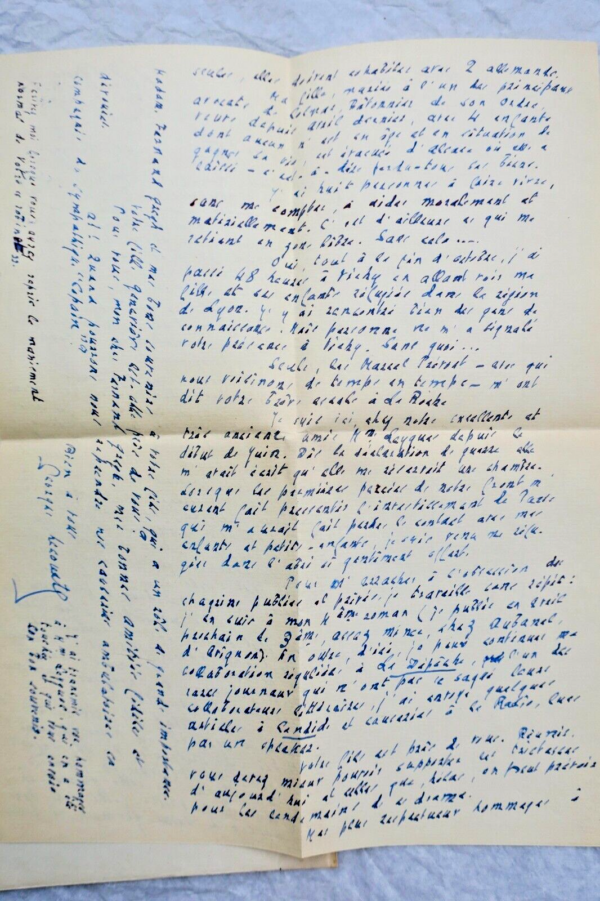 seules, elles doivent cohabiter avec 2 allemands.
Ma fille, mariée à l'un des principaux
avocats de Colmar, Bâtonnier de son Ordre,
veuve depuis avril dernier, avec 4 enfants
dont aucun n'est en âge et en situation de
gagner sa vie, est évacuée d'Alsace où elle a
laissé - c'est-à-dire perdu - tous ses biens.
J'ai huit personnes à faire vivre,
sans me compter, à aider moralement et
matériellement. C'est d'ailleurs ce qui me
retient en zone libre. Sans cela....
Oui, tout à la fin d'octobre, j'ai
passé 48 heures à Vichy en allant voir ma
fille et ses enfants réfugiés dans la région
de Lyon. J'y ai rencontré bien des gens de
connaissance. Mais personne ne m'a signalé
votre présence à Vichy. Sans quoi...
Seuls, les Marcel Prévost - avec qui
nous voisinons de temps en temps - m'ont
dit votre brève escale à La
Je suis ici chez notre excellente et
très ancienne amie Mme Leygues depuis le
début de juin. Dès la déclaration de guerre elle
m'avait écrit qu'elle me réservait une chambre.
Lorsque les premières percées de notre front m'
eurent fait pressentir l'investissement de Paris
qui m'aurait fait perdre le contact avec mes
enfants et petits-enfants, je suis venu me réfu-
gier dans l'abri si gentiment offert.
Pour m'arracher à l'obsession des
chagrins publics et privés, je travaille sans répit :
j'en suis à mon ème roman (je publie en avril
prochain le 3ème, assez mince, chez Aubanel,
d'Avignon). En outre, d'ici, je peux continuer ma
collaboration régulière à La Dépêche, l'un des
rares journaux qui n'ont pas saqué leurs
collaborateurs littéraires, j'ai envoyé quelques
articles à Candide et causeries à la Radio, lues
par un speaker.
Votre fils est près de vous. Réunis,
vous devez mieux pouvoir supporter les tristesses
d'aujourd'hui et celles que, hélas, on peut prévoir
pour les lendemains de ce drame.
Mes plus respectueux hommages à
Madame Fernand Gregh et mes bons souvenirs à votre fils, qui a un rôle de grand importance.
Votre fille Geneviève est-elle près de vous ?
Pour vous, mon cher Fernand Gregh, mes bonnes amitiés fidèles et
dévouées.
ah ! Quand pourrons-nous reprendre nos causeries ambulatoires en
compagnie du sympathique
Bien à vous
Georges Lecomte